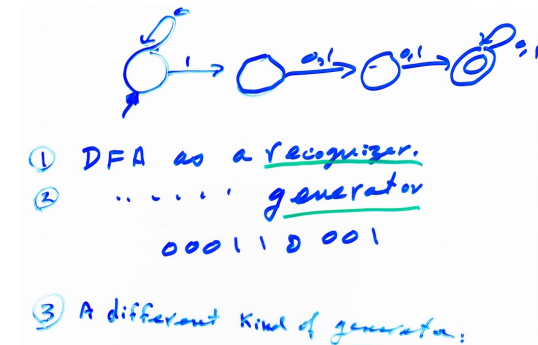 0
1 0,1 0,1 0,1
① DFA as a recognizer.
② . . . . . . generator
000110001
③ A different kind of generator: